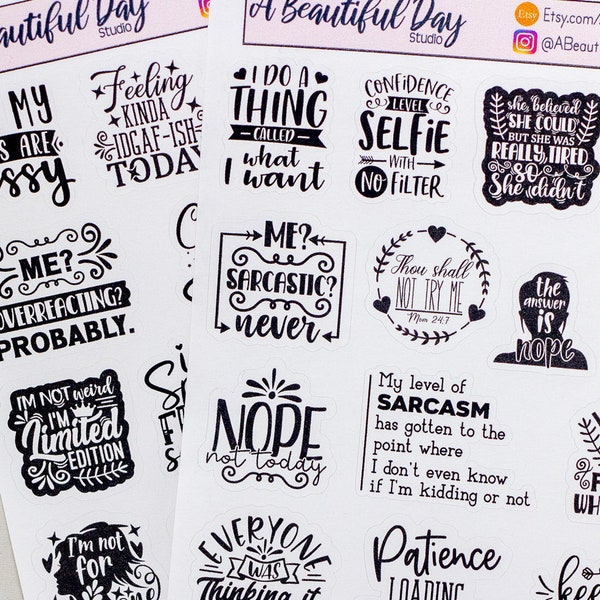 Beautiful Day
Studio
MY
ARE
Feeling
KINDA
IDGAF-ISH
TODAY
ME?
OVERREACTING?
PROBABLY.
I'M NOT weird
I'M
Limited
EDITION
I'm not
for
A Beautiful Day
Studio
Etsy
Etsy.com/
@ABeaut
I DO A
THING
CALLED
what
I want
CONFiDENCE
LEVEL
SELFiE
WITH
NO FiLTER
she believed
SHE COULD
BUT SHE WAS
REALLY TIRED
SO
She didn't
ME?
SARCASTIC?
never
Thou shall
NOT TRY ME
Mom 24:7
the
answer
IS
nope
NOPE
not today
My level of
SARCASM
has gotten to the
point where
I don't even know
if I'm kidding or not
EVERYONE
WAS
Thinking it
Patience
LOADING